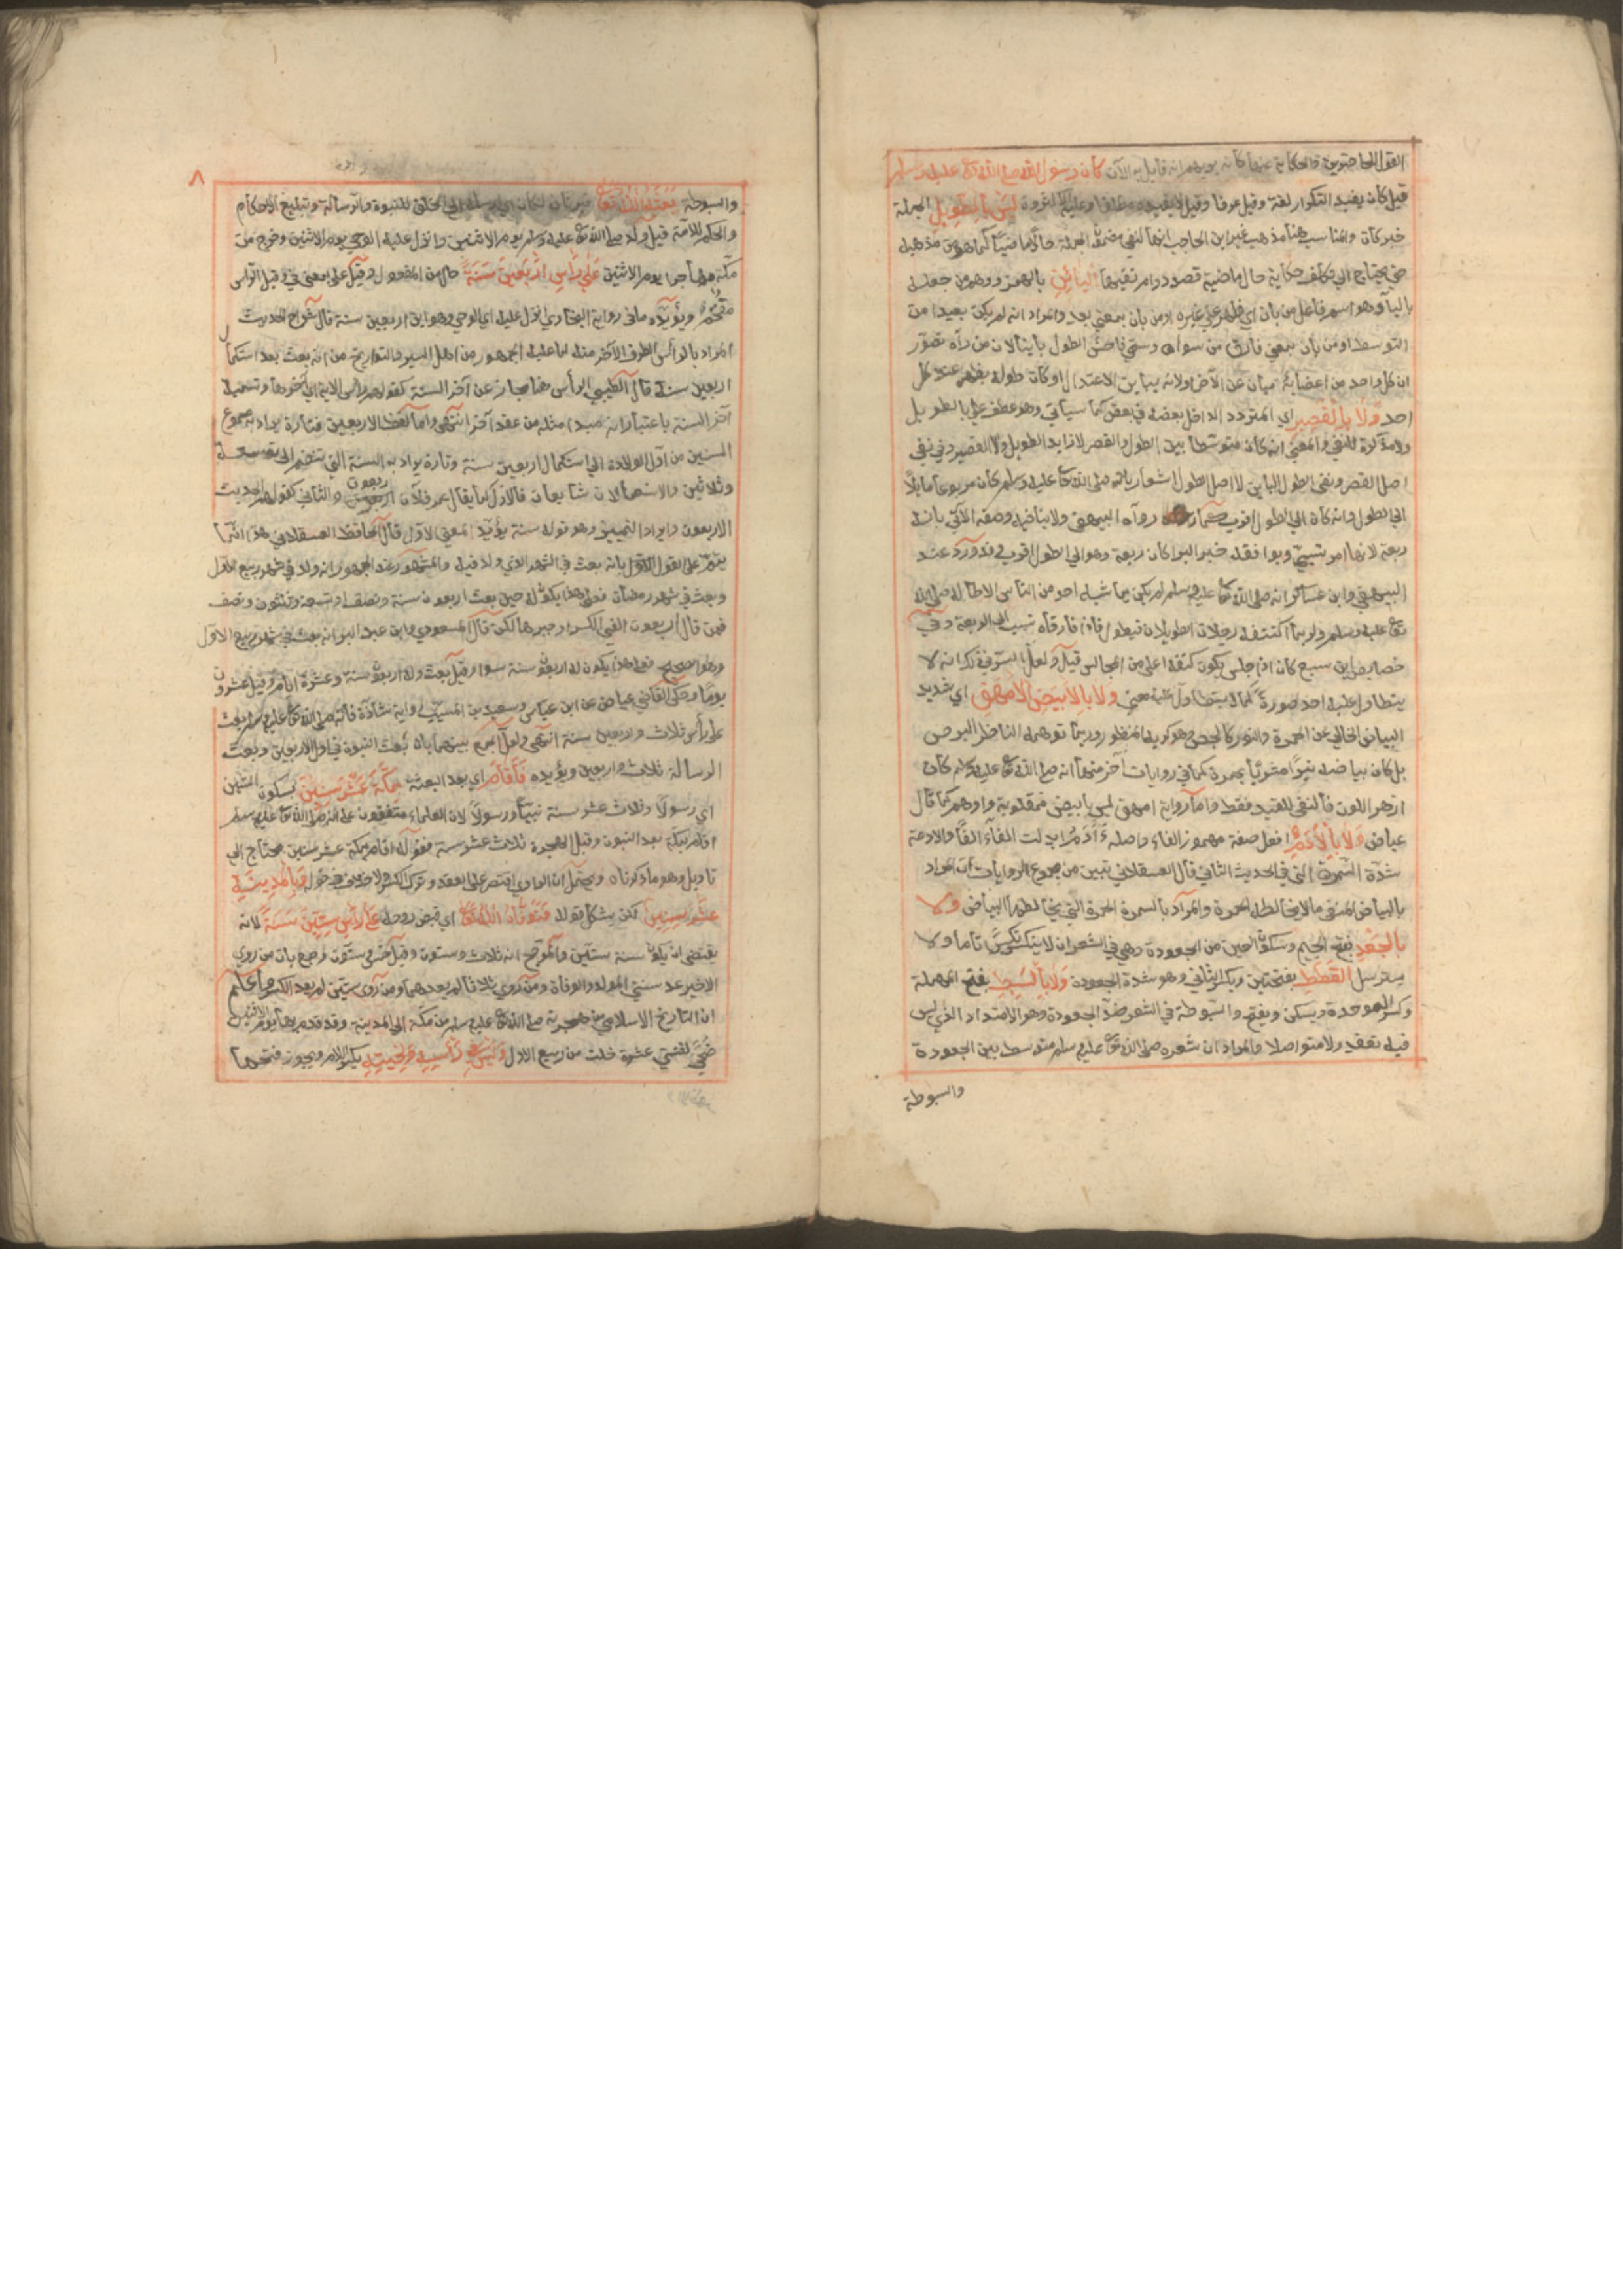 القول الحاضرين والحكاية عنها كأنه يوهم انه قايل به الآن كان رسول الله صلى الله تعالى عليه وسلم
قيل كان يفيد التكرار لغة وقيل عرفا وقيل لا يفيده مطلقا وعليه ليس بالطويل الجملة
خبر كان والمناسب هنا مذهب غير ابن الحاجب انها لنفي مضمون الجملة حالا وماضيا كما هو من مذهبه
حتى يحتاج الى تكلف حكاية حال ماضية قصد دوام نفيها الباين بالهمزة ووهم من جعله
بالياء وهو اسم فاعل من بان اي ظهر على غيره او من بان بمعنى بعد والمراد انه لم يكن بعيدا من
التوسط او من بان بمعنى فارق من سواه وسمي فاحش الطول باينا لان من رآه تصور
ان كل واحد من اعضائه مبان عن الآخر ولانه يباين الاعتدال او كان طوله يظهر عند كل
احد ولا بالقصير اي المتردد الداخل بعضه في بعض كما سيأتي وهو عطف على بالطويل
ولا مذكرة للنفي والمعنى انه كان متوسطا بين الطول والقصر لا زايد الطويل ولا القصير وفي نفي
اصل القصر ونفي الطول الباين لا اصل الطول اشعار بانه صلى الله تعالى عليه وسلم كان مربوعا مايلا
الى الطول وانه كان الى الطول اقرب كما رواه البيهقي ولا ينافيه وصفه الآتي بانه
ربعة لانها امر نسبي ويوافقه خبر البرا كان ربعة وهو الى الطول اقرب وقد ورد عند
البيهقي وابن عساكر انه صلى الله تعالى عليه وسلم لم يكن يماشيه احد من الناس الا طاله صلى الله
تعالى عليه وسلم ولربما اكتنفه رجلان الطويلان فيطول فاذا فارقاه نسب الى الربعة وفي
خصايص ابن سبع كان اذا جلس يكون كتفه اعلى من المجالس قيل ولعل السر في ذلك انه لا
يتطاول عليه احد صورة كما لا يتطاول عليه معنى ولا بالابيض الامهق اي شديد
البياض الخالي عن الحمرة والنور كالجص وهو كريه المنظر وربما توهمه الناظر البرص
بل كان بياضه نيرا مشربا بحمرة كما في روايات آخر منها انه صلى الله تعالى عليه وسلم كان
ازهر اللون فالنفي للقيد فقط واما رواية امهق ليس بابيض فمقلوبة او وهم كما قال
عياض ولا بالآدم افعل صفة مهموز الفاء واصله أأدم ابدلت الفاء الفا والادمة
شدة السمرة التي في الحديث الثاني قال العسقلاني تبين من مجموع الروايات ان المراد
بالبياض المنفي ما لا يخالطه الحمرة والمراد بالسمرة الحمرة التي يخالطها البياض ولا
بالجعد بفتح الجيم وسكون العين من الجعودة وهي في الشعر ان لا يتكسر تاما ولا
يسترسل القطط بفتحتين وبكسر الثاني وهو شدة الجعودة ولا بالسبط بفتح المهملة
وكسر الموحدة ويسكن ويفتح والسبوطة في الشعر ضد الجعودة وهو الامتداد الذي ليس
فيه تعقد ولا متواصلا والمراد ان شعره صلى الله تعالى عليه وسلم متوسط بين الجعودة
والسبوطة
٨
والسبوطة بعثه الله تعالى خبر ثان لكان اي ارسله الى الخلق للنبوة والرسالة وتبليغ الاحكام
والحكم للامة قيل ولد صلى الله تعالى عليه وسلم يوم الاثنين وانزل عليه الوحي يوم الاثنين وخرج من
مكة مهاجرا يوم الاثنين على رأس اربعين سنة حال من المفعول وقيل على بمعنى في وقيل الرأس
مقحم ويؤيده ما في رواية البخاري انزل عليه اي الوحي وهو ابن اربعين سنة قال شراح الحديث
المراد بالرأس الطرف الآخر منه لما عليه الجمهور من اهل السير والتواريخ من انه بعث بعد استكمال
اربعين سنة قال الطيبي الرأس هنا مجاز عن آخر السنة كقولهم رأس الاية اي آخرها وتسمية
آخر السنة باعتبار انه مبدا مثله من عقد آخر انتهى واما لفظ الاربعين فتارة يراد به مجموع
السنين من اول الولادة الى استكمال اربعين سنة وتارة يراد به السنة التي تنضم الى تسعة
وثلاثين والاستعمالان شايعان فالاول كما يقال عمر فلان اربعون والثاني كقولهم الحديث
الاربعون وايراد التمييز وهو قوله سنة يؤيد المعنى الاول قال الحافظ العسقلاني هذا انما
يتم على القول بانه بعث في الشهر الذي ولد فيه والمشهور عند الجمهور انه ولد في شهر ربيع الاول
وبعث في شهر رمضان فعلى هذا يكون له حين بعث اربعون سنة ونصف او تسعة وثلثون ونصف
فمن قال اربعون الغى الكسر او جبرها لكن قال المسعودي وابن عبد البر انه بعث في شهر ربيع الاول
وهو الصحيح فعلى هذا يكون له اربعون سنة سواء وقيل بعث وله اربعون سنة وعشرة ايام وقيل عشرون
يوما وحكى القاضي عياض عن ابن عباس وسعيد بن المسيب رواية شاذة فانه صلى الله تعالى عليه وسلم بعث
على رأس ثلاث واربعين سنة انتهى ولعل الجمع بينهما بان بعث النبوة في اول الاربعين وبعث
الرسالة ثلاث واربعين ويؤيده فاقام اي بعد البعثة بمكة عشر سنين بسكون الشين
اي رسولا وثلاث عشر سنة نبيا ورسولا لان العلماء متفقون على انه صلى الله تعالى عليه وسلم
اقام بمكة بعد النبوة وقبل الهجرة ثلاث عشر سنة فقوله اقام بمكة عشر سنين محتاج الى
تاويل وهو ما ذكرناه ويحتمل ان الراوي اقتصر على العقد وترك الكسر ولا خلاف في قوله وبالمدينة
عشر سنين لكن يشكل قوله فتوفاه الله تعالى اي قبض روحه على رأس ستين سنة لانه
يقتضي ان يكون سنه ستين والمرجح انه ثلاث وستون وقيل خمس وستون وجمع بان من روى
الاخير عد سنتي المولد والوفاة ومن روى ثلاثا لم يعدهما ومن روى ستين لم يعد الكسر واعلم
ان التاريخ الاسلامي من هجرته صلى الله تعالى عليه وسلم من مكة الى المدينة وقد قدم بها يوم الاثنين
ضحى لثنتي عشرة خلت من ربيع الاول وليس في رأسه ولحيته بكسر اللام ويجوز فتحها